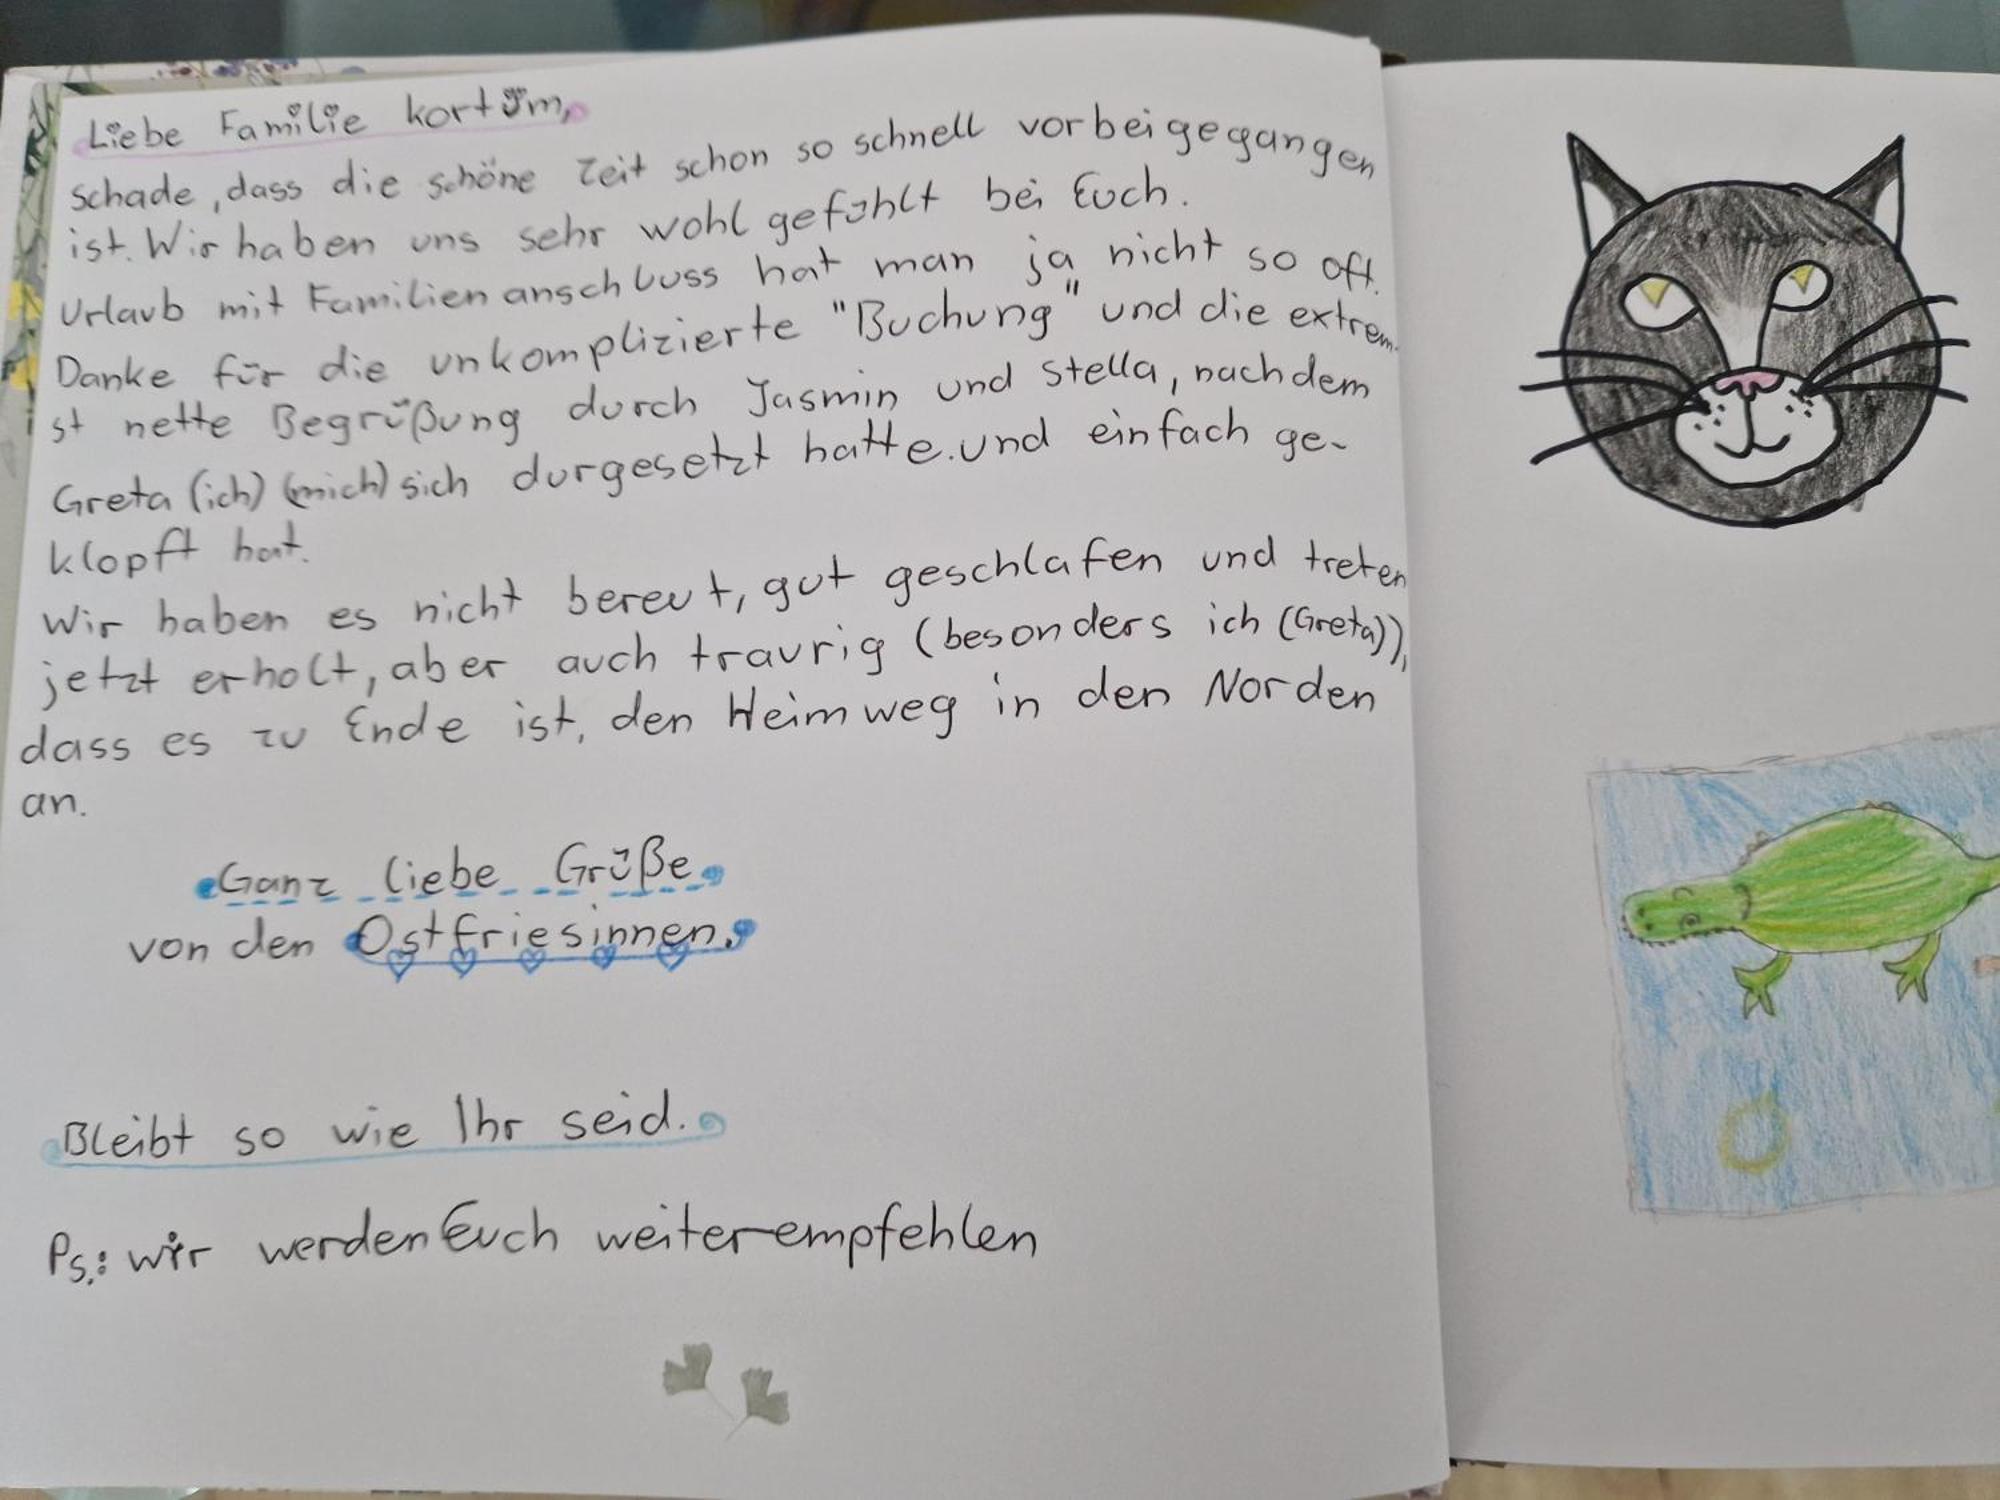 Liebe Familie kortüm,
schade, dass die schöne Zeit schon so schnell vorbeigegangen
ist. Wir haben uns sehr wohl gefühlt bei Euch.
Urlaub mit Familienanschluss hat man ja nicht so oft.
Danke für die unkomplizierte "Buchung" und die extrem
st nette Begrüßung durch Jasmin und Stella, nachdem
Greta (ich) (mich) sich durgesetzt hatte.und einfach ge-
klopft hat.
Wir haben es nicht bereut, gut geschlafen und treten
jetzt erholt, aber auch traurig (besonders ich (Greta)),
dass es zu Ende ist, den Heimweg in den Norden
an.
Ganz liebe Grüße
von den Ostfriesinnen.
Bleibt so wie Ihr seid.
Ps.: wir werden Euch weiterempfehlen